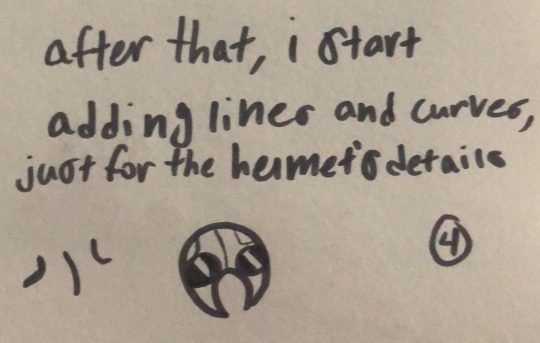 after that, i start
adding lines and curves,
just for the helmet's details
4